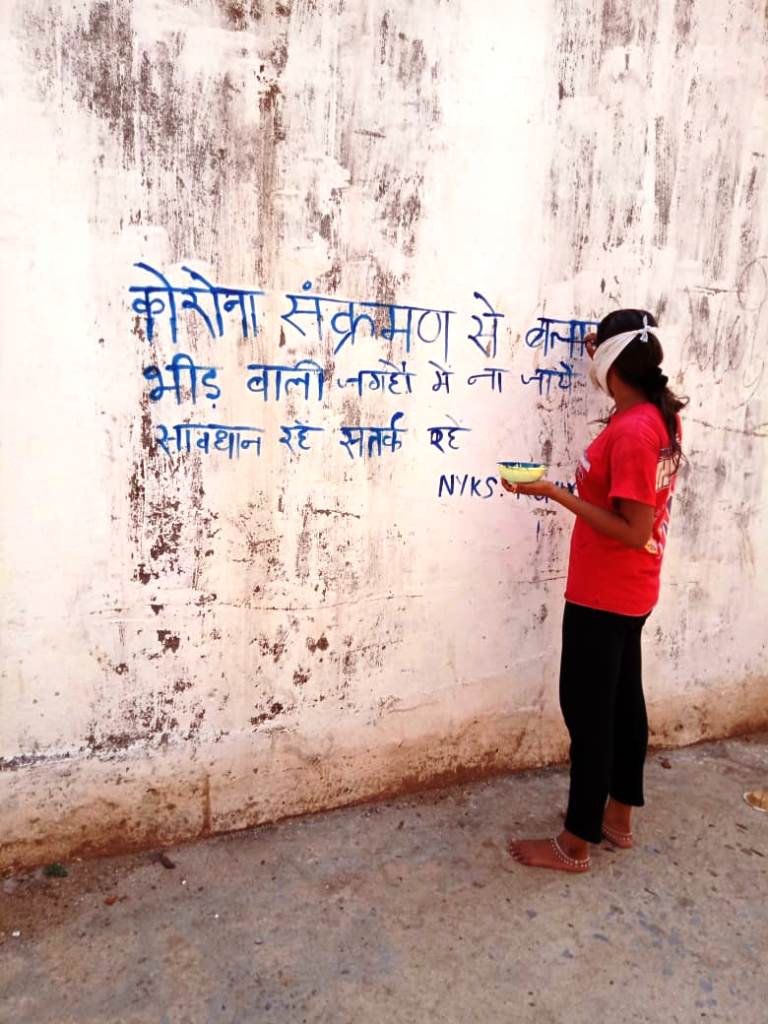 कोरोना संक्रमण से बचा
भीड़ वाली जगहों में ना जायें
सावधान रहे सतर्क रहे
NYKS.